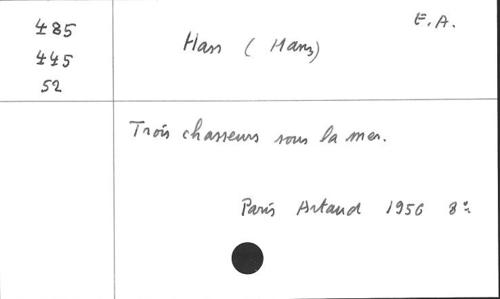 485
445
52
E. A.
Hass (Hans)
Trois chasseurs sous la mer.
Paris Artaud 1956 8º